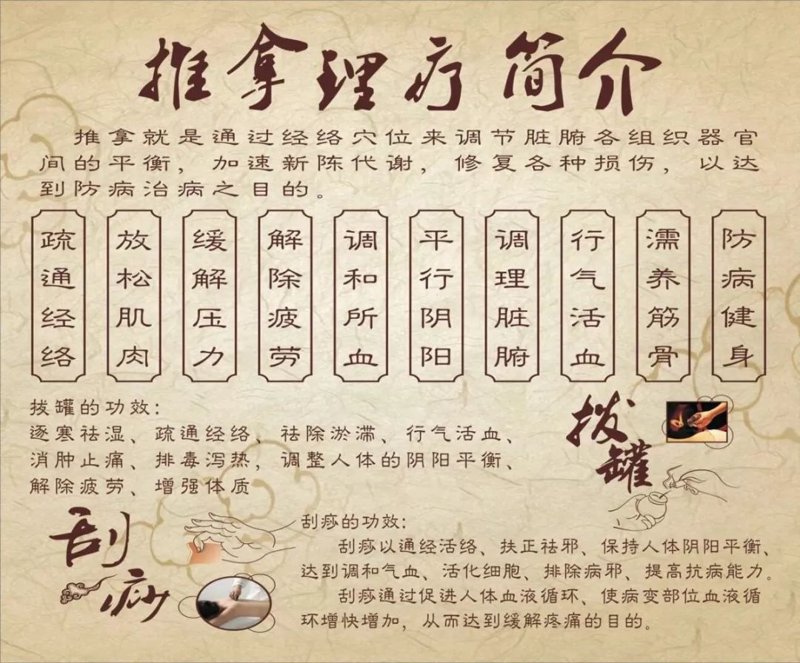 推拿理疗简介
推拿就是通过经络穴位来调节脏腑各组织器官
间的平衡，加速新陈代谢，修复各种损伤，以达
到防病治病之目的。
疏通经络
放松肌肉
缓解压力
解除疲劳
调和所血
平行阴阳
调理脏腑
行气活血
濡养筋骨
防病健身
拨罐的功效：
逐寒祛湿、疏通经络、祛除淤滞、行气活血、
消肿止痛、排毒泻热，调整人体的阴阳平衡、
解除疲劳、增强体质
拨罐
刮痧
刮痧的功效：
刮痧以通经活络、扶正祛邪、保持人体阴阳平衡、
达到调和气血、活化细胞、排除病邪、提高抗病能力。
刮痧通过促进人体血液循环、使病变部位血液循
环增快增加，从而达到缓解疼痛的目的。